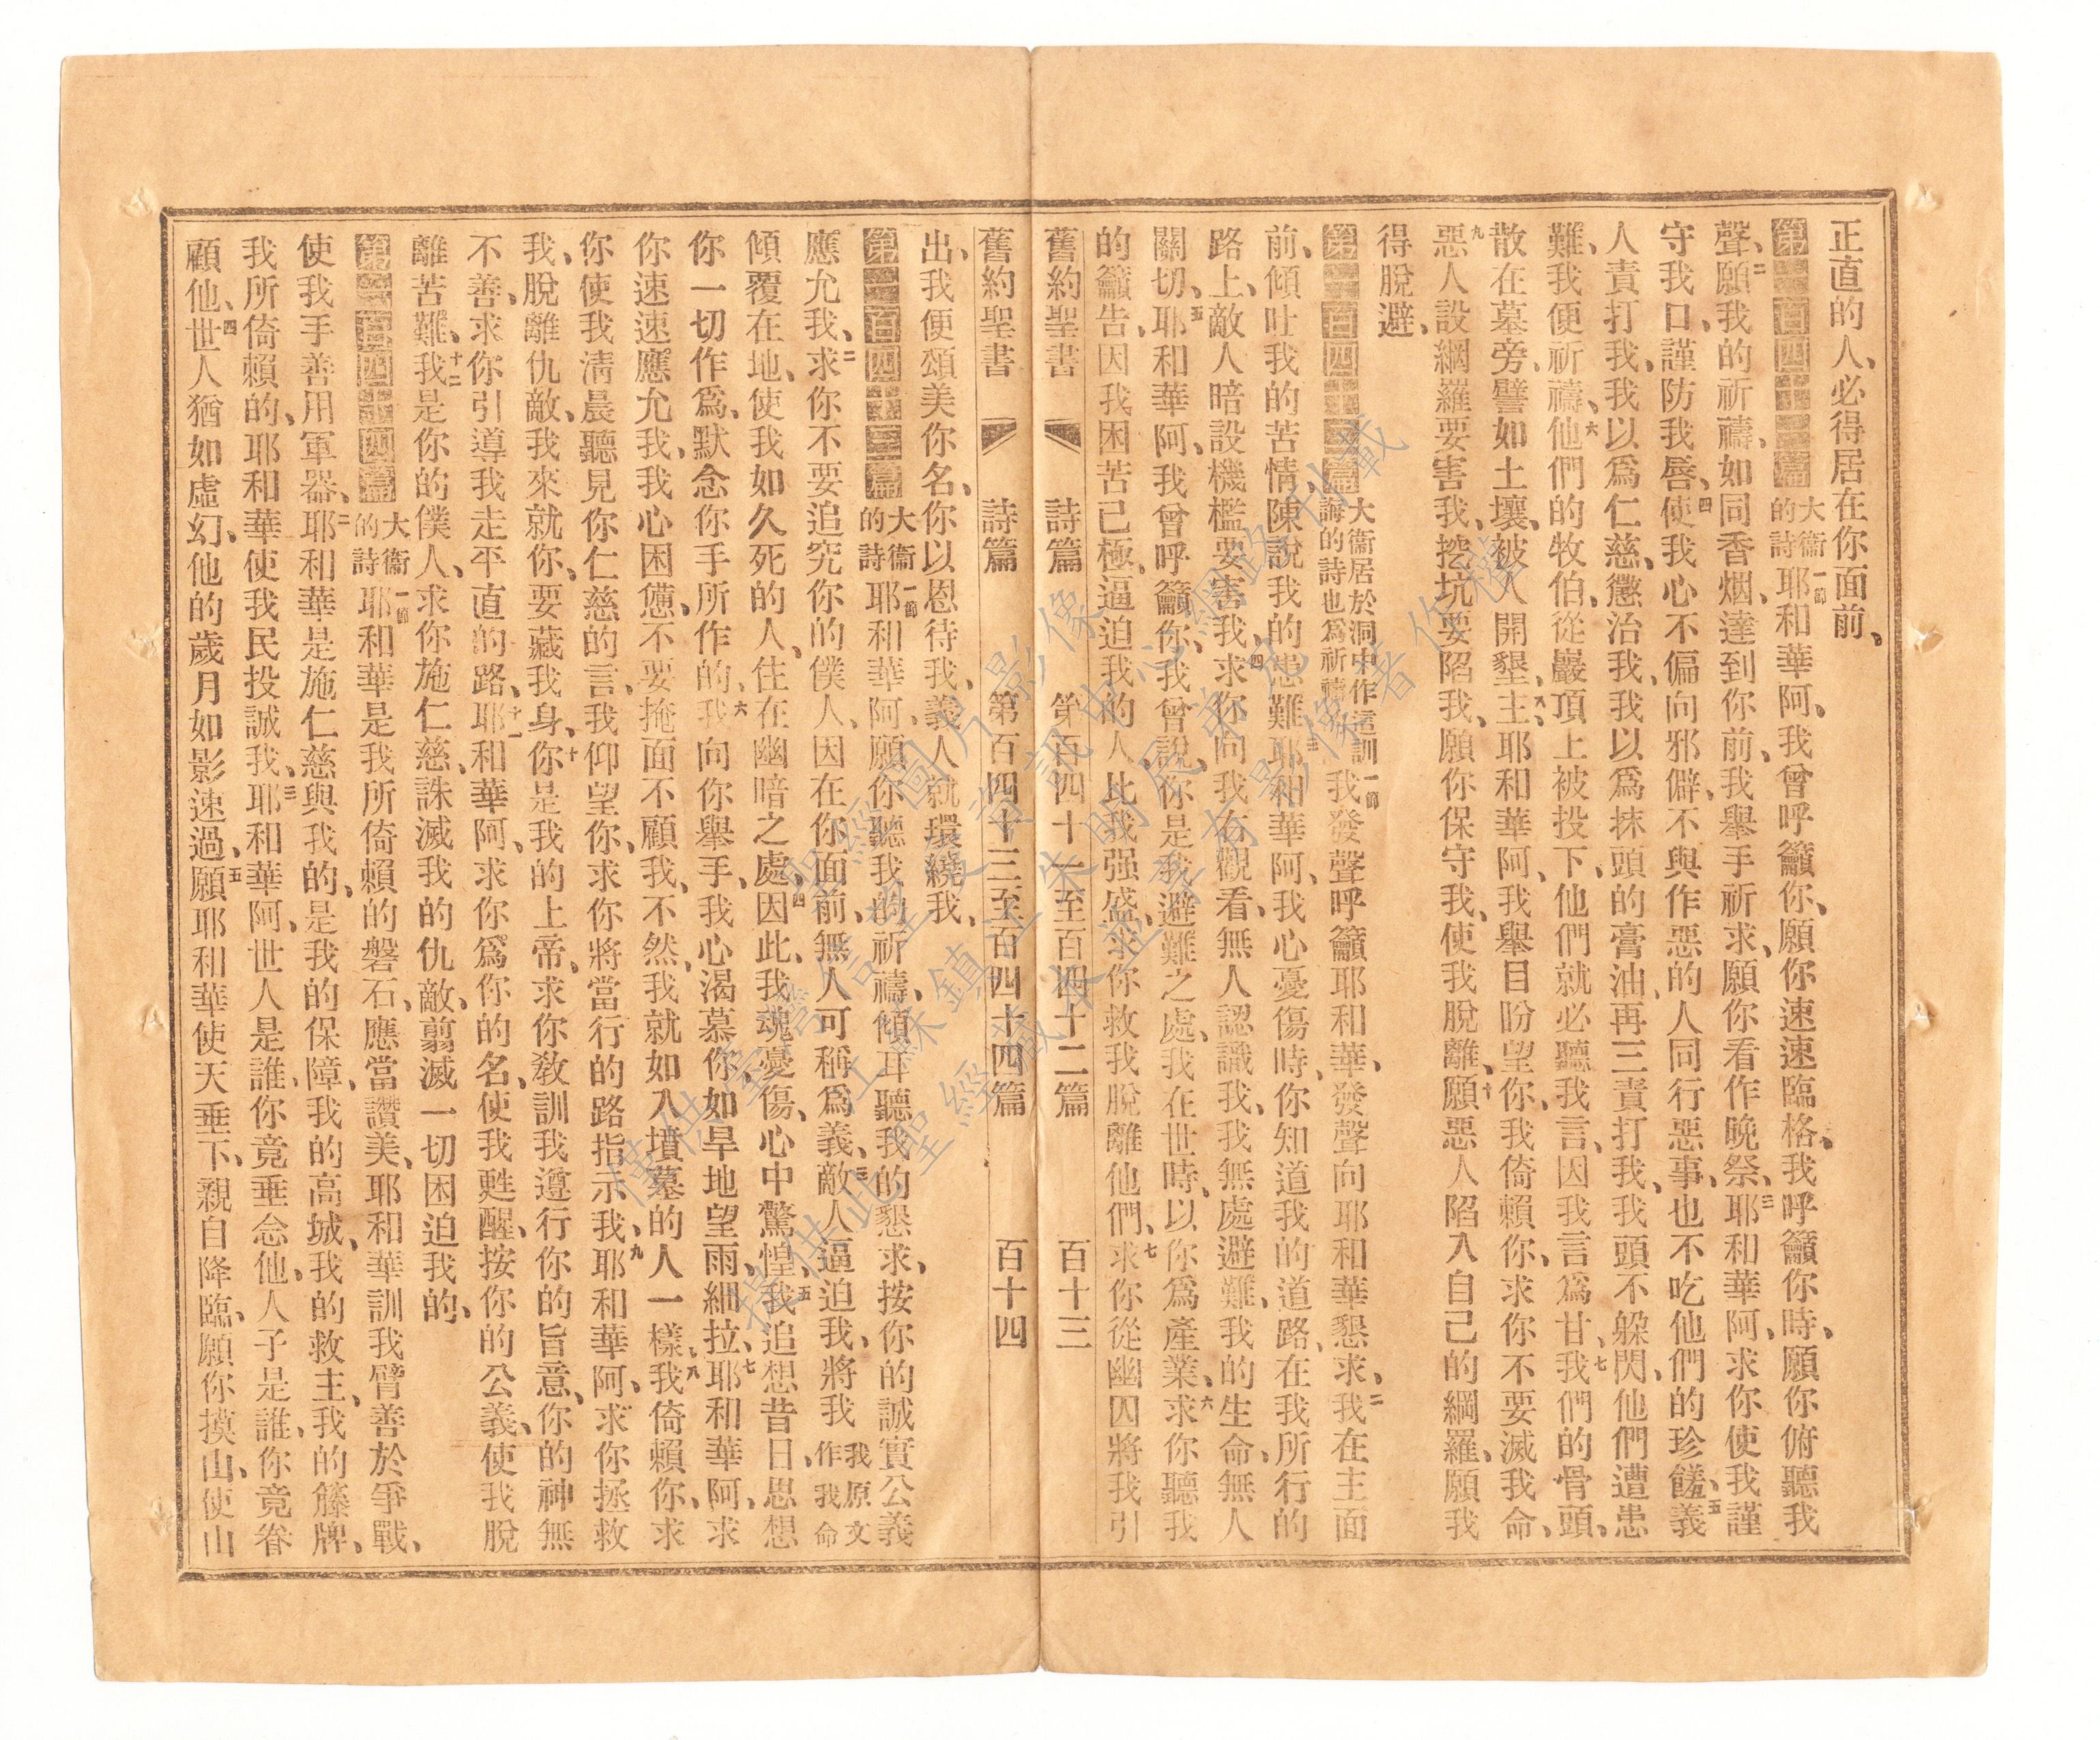 正直的人、必得居在你面前、
第一百四十一篇 大衞的詩 一節耶和華阿、我曾呼籲你、願你速速臨格、我呼籲你時、願你俯聽我
聲、二願我的祈禱、如同香烟、達到你前、我舉手祈求、願你看作晚祭、三耶和華阿、求你使我謹
守我口、謹防我唇、四使我心不偏向邪僻、不與作惡的人同行惡事、也不吃他們的珍饈、五義
人責打我、我以爲仁慈、懲治我、我以爲抹頭的膏油、再三責打我、我頭不躲閃、他們遭患
難、我便祈禱、六他們的牧伯、從巖頂上被投下、他們就必聽我言、因我言爲甘、七我們的骨頭、
散在墓旁、譬如土壤、被人開墾、八主、耶和華阿、我舉目盼望你、我倚賴你、求你不要滅我命、
九惡人設網羅要害我、挖坑要陷我、願你保守我、使我脫離、十願惡人陷入自己的網羅、願我
得脫避、
第一百四十二篇 大衞居於洞中作這訓誨的詩也爲祈禱 一節我發聲呼籲耶和華、發聲向耶和華懇求、二我在主面
前、傾吐我的苦情、陳說我的患難、三耶和華阿、我心憂傷時、你知道我的道路、在我所行的
路上、敵人暗設機檻要害我、四求你向我右觀看、無人認識我、我無處避難、我的生命、無人
關切、五耶和華阿、我曾呼籲你、我曾說、你是我避難之處、我在世時、以你爲產業、六求你聽我
的籲告、因我困苦已極、逼迫我的人、比我强盛、求你救我脫離他們、七求你從幽囚將我引
舊約聖書 詩篇 第百四十一至百四十二篇 百十三
舊約聖書 詩篇 第百四十三至百四十四篇 百十四
出、我便頌美你名、你以恩待我、義人就環繞我、
第一百四十三篇 大衞的詩 一節耶和華阿、願你聽我的祈禱、傾耳聽我的懇求、按你的誠實公義
應允我、二求你不要追究你的僕人、因在你面前、無人可稱爲義、三敵人逼迫我、將我 我原文作我命
傾覆在地、使我如久死的人、住在幽暗之處、四因此、我魂憂傷、心中驚惶、五我追想昔日、思想
你一切作爲、默念你手所作的、六我向你舉手、我心渴慕你、如旱地望雨、細拉、七耶和華阿、求
你速速應允我、我心困憊、不要掩面不顧我、不然、我就如入墳墓的人一樣、八我倚賴你、求
你使我淸晨聽見你仁慈的言、我仰望你、求你將當行的路指示我、九耶和華阿、求你拯救
我、脫離仇敵、我來就你、要藏我身、十你是我的上帝、求你敎訓我遵行你的旨意、你的神無
不善、求你引導我走平直的路、十一耶和華阿、求你爲你的名、使我甦醒、按你的公義、使我脫
離苦難、十二我是你的僕人、求你施仁慈、誅滅我的仇敵、翦滅一切困迫我的、
第一百四十四篇 大衞的詩 一節耶和華是我所倚賴的磐石、應當讚美、耶和華訓我臂善於爭戰、
使我手善用軍器、二耶和華是施仁慈與我的、是我的保障、我的高城、我的救主、我的籐牌、
我所倚賴的、耶和華使我民投誠我、三耶和華阿、世人是誰、你竟垂念他、人子是誰、你竟眷
顧他、四世人猶如虛幻、他的歲月如影速過、五願耶和華使天垂下、親自降臨、願你摸山、使山